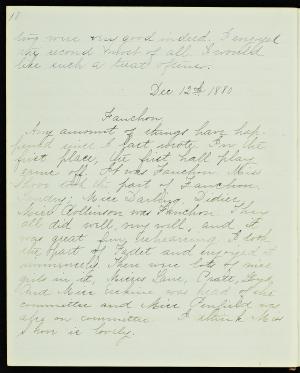 18
ting were very good indeed. I enjoyed
the second most of all. I would
like such a treat often.
Dec 12th 1880
Fanchon.
Any amount of things have hap-
pened since I last wrote. For the
first place, the first hall play
came off. It was Fanchon. Miss
took the part of Fanchon.
Landry, Miss Darling, Didier,
Miss Collinson was Fanchon. They
all did well, very well, and it
was great fun rehearsing. I took
the part of Cadet and enjoyed it
immensely. There were lots of nice
girls in it, Misses Lane, Pratt,
and Miss was head of the
committee and Miss Penfield was
also on committee. I think Miss
is lovely.